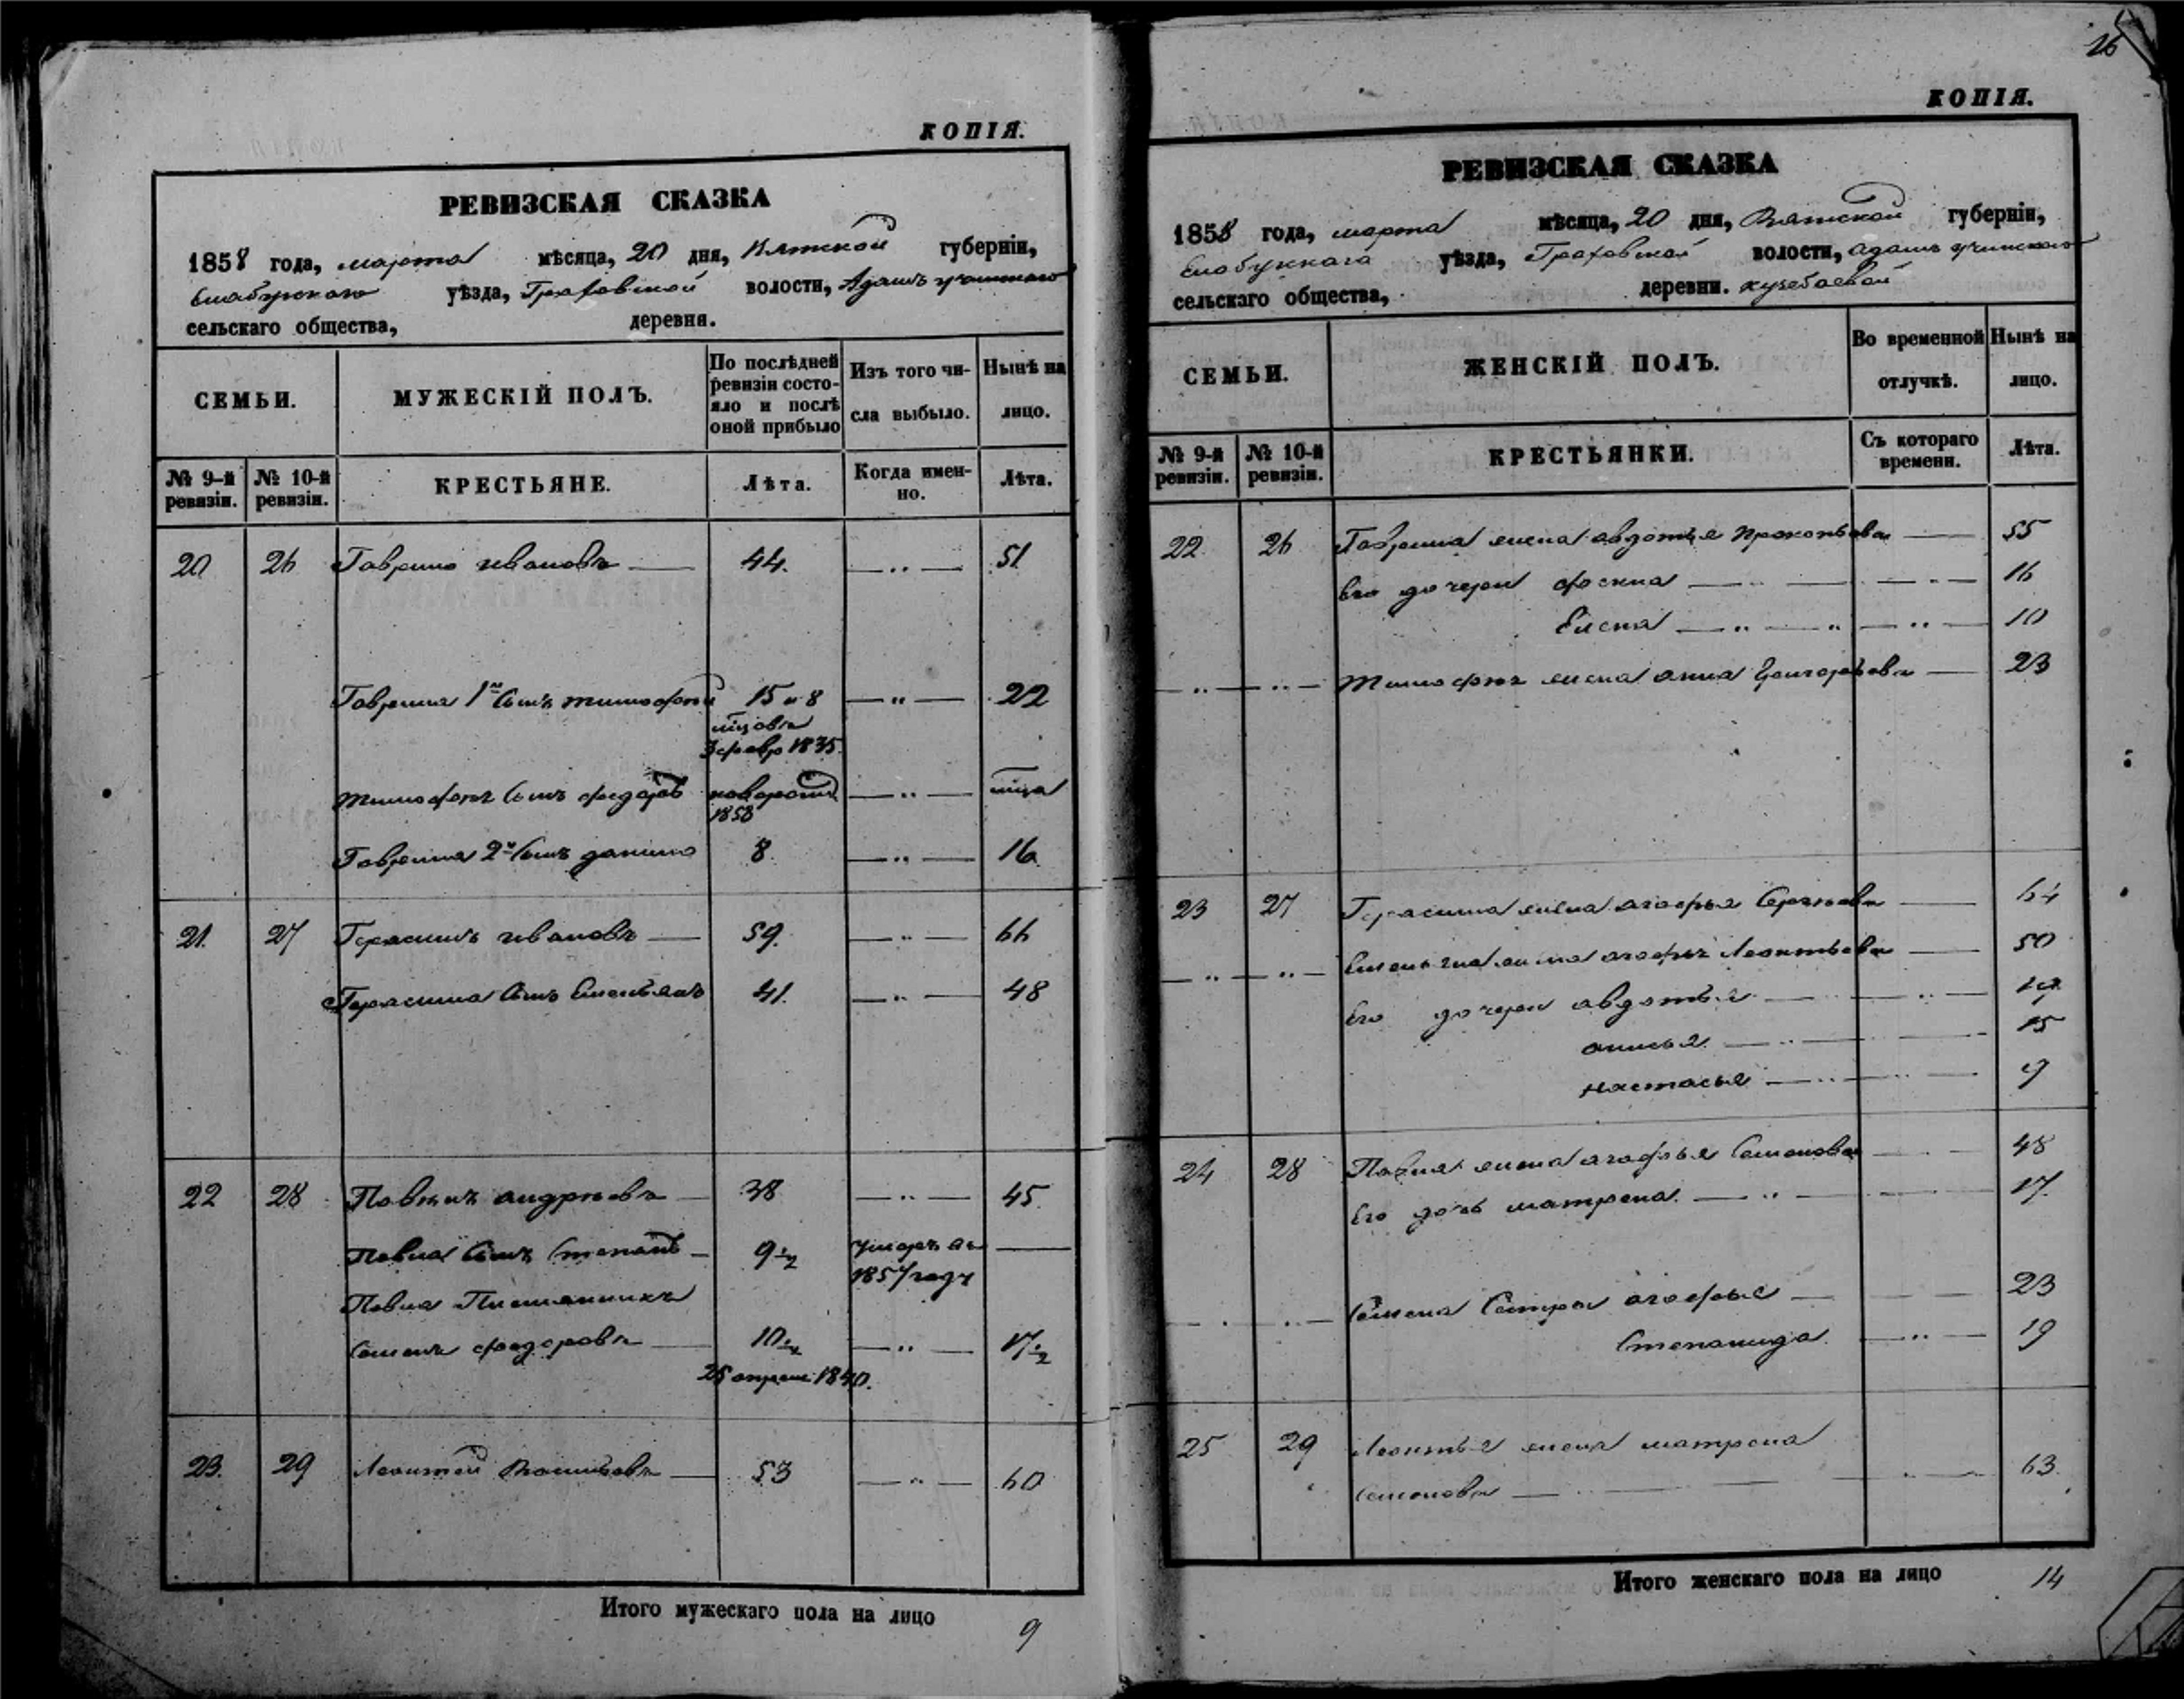 КОПІЯ.
РЕВИЗСКАЯ СКАЗКА
1858 года, марта мѣсяца, 20 дня, Вятской губерніи,
Елабужского уѣзда, Граховской волости, Адамъ учинскаго
сельскаго общества, деревня.
СЕМЬИ.
МУЖЕСКІЙ ПОЛЪ.
По послѣдней ревизіи состо-
яло и послѣ
оной прибыло
Изъ того чи-
сла выбыло.
Нынѣ на
лицо.
№ 9-й ревизіи.
№ 10-й ревизіи.
КРЕСТЬЯНЕ.
Лѣта.
Когда имен-
но.
Лѣта.
20 26 Гаврило Ивановъ 44. 51
Гаврила 1й сынъ Тимофей 15 и 8 22
3 февр 1835.
Тимофея сынъ Федоръ новорожд
1858
Гаврила 2й сынъ Данило 8. 16
21. 27 Герасимъ Ивановъ 59. 66
Герасима сынъ Емельянъ 41. 48
22 28 Павелъ Андреевъ 38 45.
Павла сынъ Степанъ 9½ умеръ въ
1857 году
Павла Племянникъ
Семенъ Федоровъ 10½ 17½
25 апреля 1840.
23. 29 Леонтей Васильевъ 53 60
Итого мужескаго пола на лицо 9
26
КОПІЯ.
РЕВИЗСКАЯ СКАЗКА
1858 года, марта мѣсяца, 20 дня, Вятской губерніи,
Елабужкаго уѣзда, Граховской волости, Адамъ учинскаго
сельскаго общества, деревни. Кузебаевой
СЕМЬИ.
ЖЕНСКІЙ ПОЛЪ.
Во временной
отлучкѣ.
Нынѣ на
лицо.
№ 9-й ревизіи.
№ 10-й ревизіи.
КРЕСТЬЯНКИ.
Съ котораго
времени.
Лѣта.
22 26 Гаврила жена Авдотья Прокопьева 55
Его дочери 16
Елена 10
Тимофея жена Анна Григорьева 23
23 27 Герасима жена Агафья Сергеева 64
Емельяна жена Агафья Леонтьева 50
Его дочери Авдотья 19
Анисья 15
Настасья 9
24 28 Павла жена Агафья Семенова 48
Его дочь Матрена. 17.
Семена Сестры Агафья 23
Степанида. 19
25 29 Леонтья жена Матрена
Семенова 63.
Итого женскаго пола на лицо 14